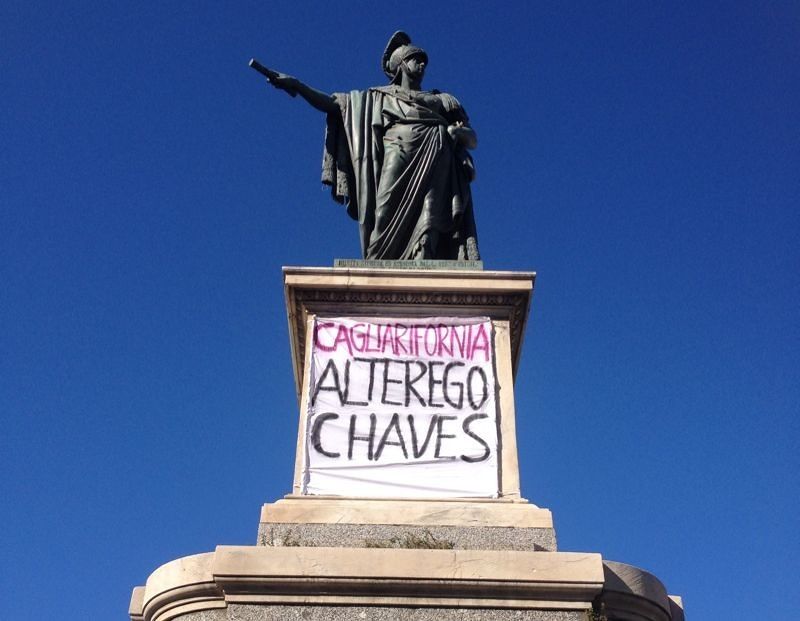 CAGLIARIFORNIA
ALTEREGO
CHAVES